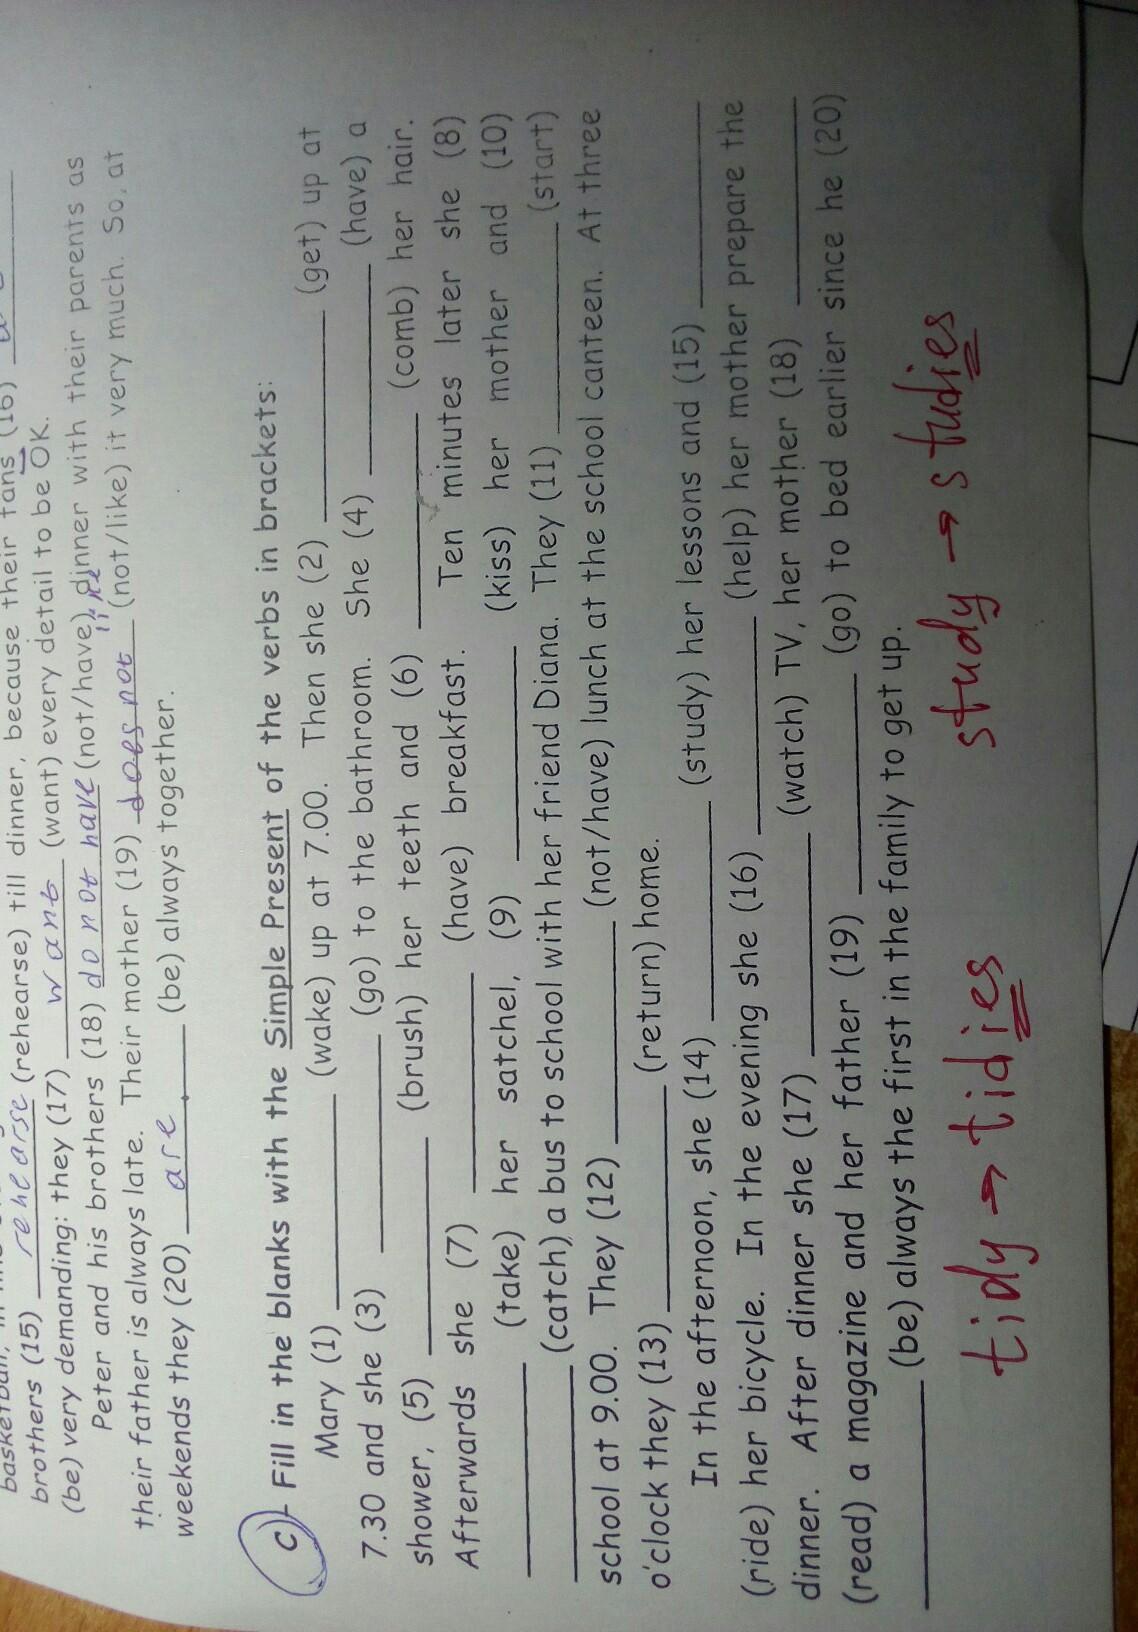 basketball, in
brothers (15) rehearse (rehearse) till dinner, because their fans (16)
(be) very demanding: they (17) want (want) every detail to be OK.
Peter and his brothers (18) do not have (not/have) dinner with their parents as
their father is always late. Their mother (19) does not like (not/like) it very much. So, at
weekends they (20) are (be) always together.
C) Fill in the blanks with the Simple Present of the verbs in brackets:
Mary (1) ________ (wake) up at 7.00. Then she (2) ________ (get) up at
7.30 and she (3) ________ (go) to the bathroom. She (4) ________ (have) a
shower, (5) ________ (brush) her teeth and (6) ________ (comb) her hair.
Afterwards she (7) ________ (have) breakfast. Ten minutes later she (8)
________ (take) her satchel, (9) ________ (kiss) her mother and (10)
________ (catch) a bus to school with her friend Diana. They (11) ________ (start)
school at 9.00. They (12) ________ (not/have) lunch at the school canteen. At three
o'clock they (13) ________ (return) home.
In the afternoon, she (14) ________ (study) her lessons and (15) ________
(ride) her bicycle. In the evening she (16) ________ (help) her mother prepare the
dinner. After dinner she (17) ________ (watch) TV, her mother (18) ________
(read) a magazine and her father (19) ________ (go) to bed earlier since he (20)
________ (be) always the first in the family to get up.
tidy → tidies study → studies